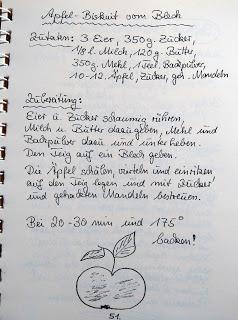 Apfel-Biskuit vom Blech
Zutaten: 3 Eier, 350g. Zucker,
1/8 l. Milch, 120g. Butter,
350g. Mehl, 1 Teel. Backpulver,
10-12 Äpfel, Zucker, geh. Mandeln
Zubereitung:
Eier u. Zucker schaumig rühren,
Milch u. Butter dazugeben, Mehl und
Backpulver dazu und unterheben.
Den Teig auf ein Blech geben.
Die Äpfel schälen, vierteln und einritzen
auf den Teig legen und mit Zucker
und gehackten Mandeln bestreuen.
Bei 20-30 min und 175°
backen!
51.